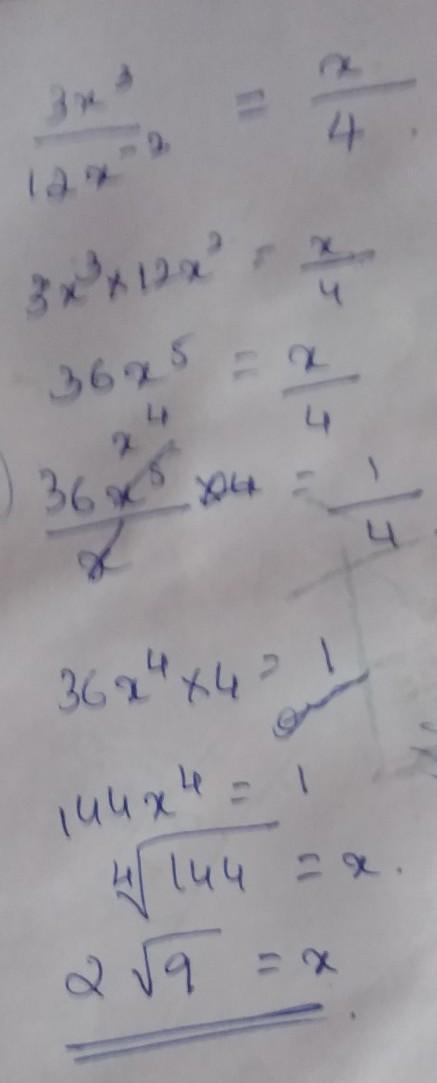 3x³/12x⁻² = x/4.
3x³ × 12x² = x/4
36x⁵ = x/4
x⁴
36x⁵/x × 4 = 1/4
36x⁴ × 4 = 1
144x⁴ = 1
∜144 = x.
2√9 = x.